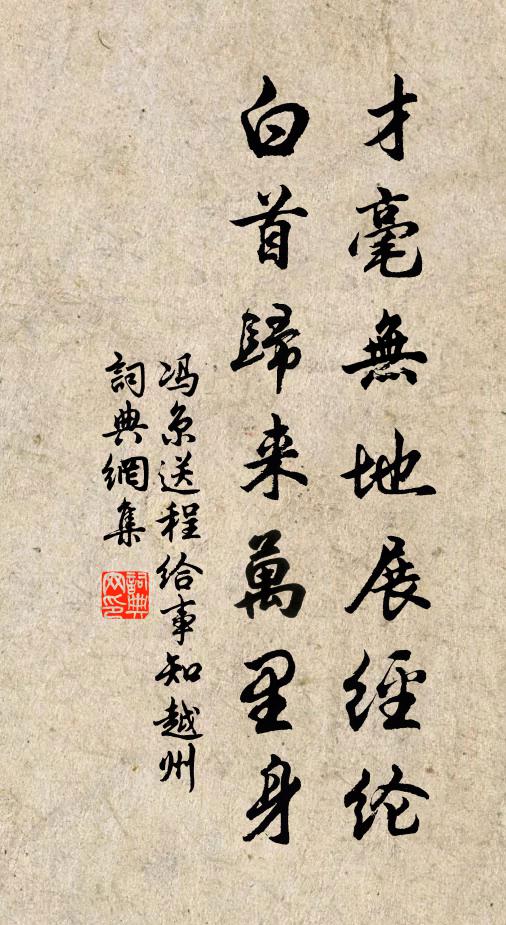 才毫無地展經纶
白首歸来萬里身
冯京送程给事知越州
詞典網集
詞典网印